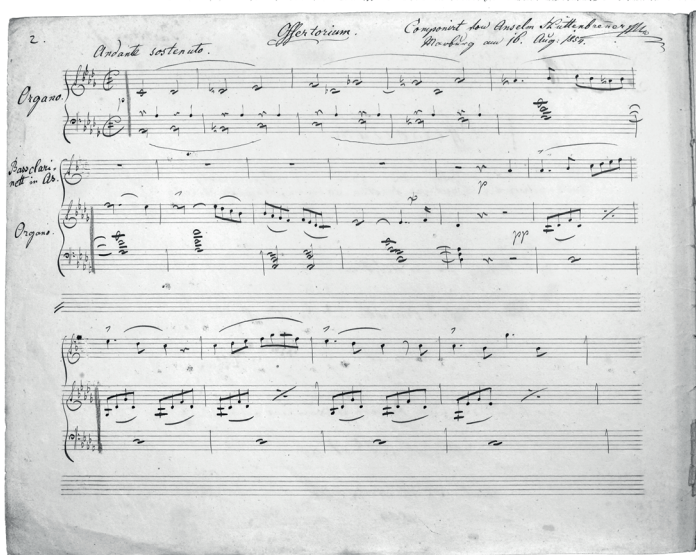 2. Offertorium. Componirt von Anselm Hüttenbrenner
Marburg am 16. Aug. 1854.
Andante sostenuto.
Organo.
p
Bassclari-
nett in As.
p
p
Organo.
pp